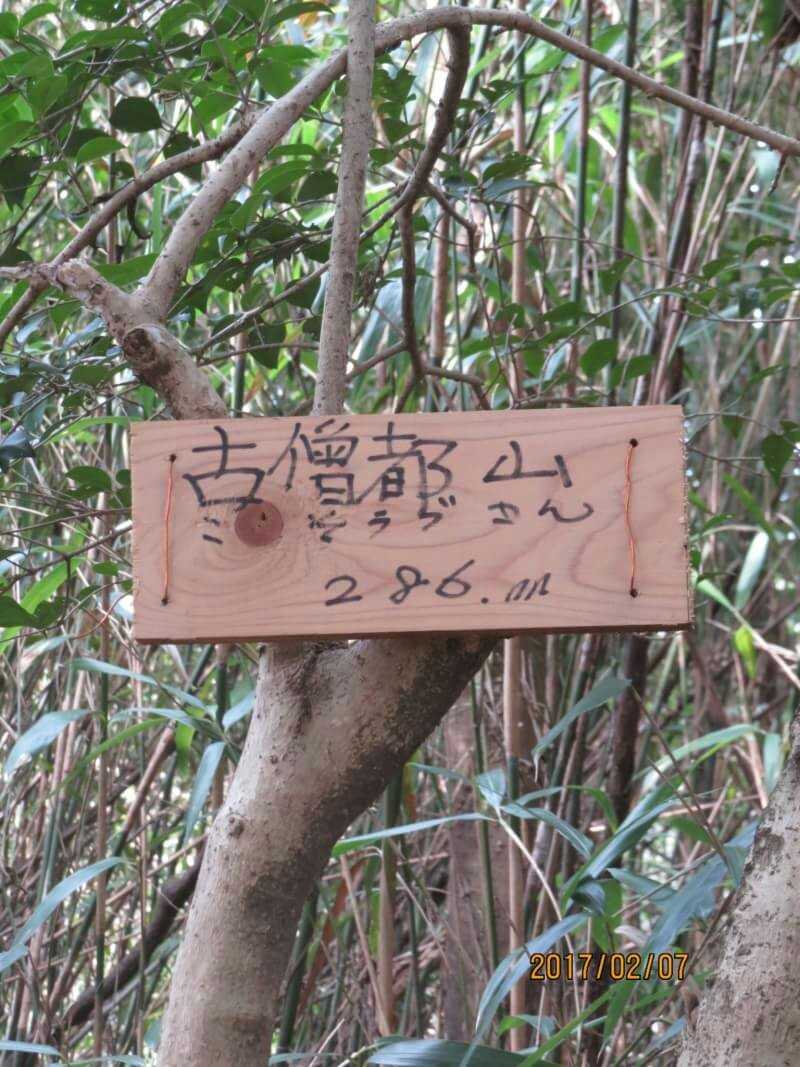 古僧都山
こそうづさん
286.m
2017/02/07